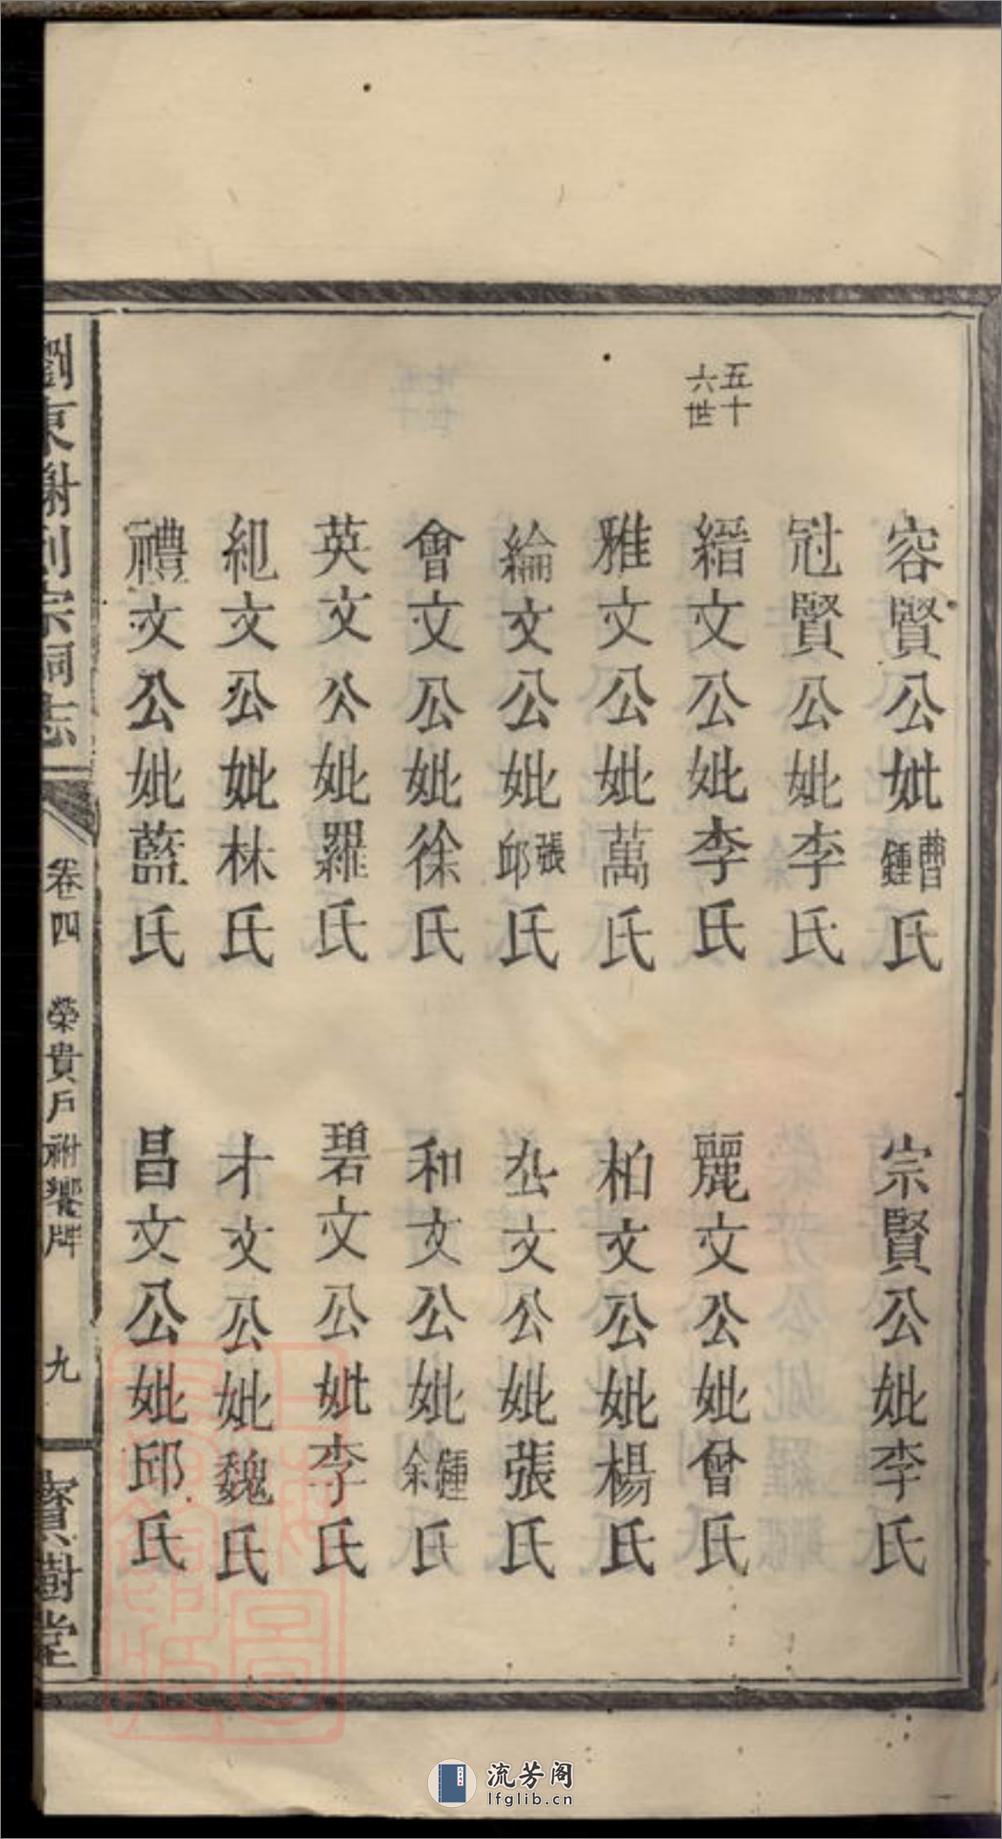 容賢公妣曹鍾氏
宗賢公妣李氏
冠賢公妣李氏
五十六世
縉文公妣李氏
麗文公妣曾氏
雅文公妣萬氏
柏文公妣楊氏
綸文公妣張邱氏
厽文公妣張氏
會文公妣徐氏
和文公妣鍾余氏
英文公妣羅氏
碧文公妣李氏
紀文公妣林氏
才文公妣魏氏
禮文公妣藍氏
昌文公妣邱氏
瀏東謝列宗祠志
卷四
榮貴戶祔饗牌
九
寶樹堂
流芳阁
lfglib.cn